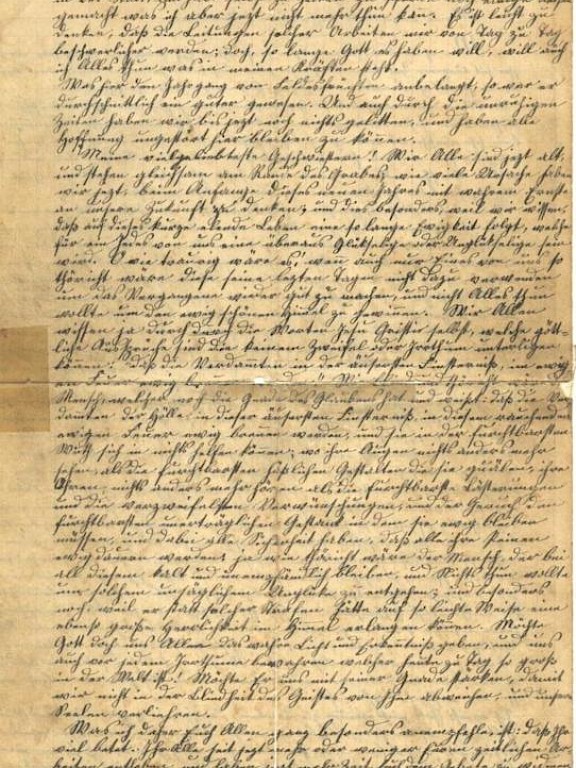 gemacht was ich aber jetzt nicht mehr thun kan. Es ist leicht zu
denken, daß die Leistungen solcher Arbeiten mir von Tag zu Tag
beschwerlicher werden; doch, so lange Gott es haben will, will auch
ich Alles thun was in meinen Kräften steht.
Was hier den Jahrgang von Feldesfrüchten anbelangt, so war er
durchschnittlich ein guter gewesen. Und auch durch die unruhigen
Zeiten haben wir bis jetzt noch nichts gelitten, und haben alle
Hoffnung ungestört hier bleiben zu können.
Meine vielgeliebteste Geschwistern! Wir Alle sind jetzt alt,
und stehen gleichsam am Rande des Grabes, wie viele Ursache haben
wir jetzt, beim Anfange dieses neuen Jahres mit wahrem Ernste
an unsere Zukunft zu denken; und dies besonders, weil wir wissen,
daß auf dieses kurze elende Leben eine so lange Ewigkeit folgt, welche
für ein Jedes von uns eine überaus Glükselige oder Unglükselige sein
wird. O wie traurig wäre es! wen auch nur Eines von uns so
thöricht wäre diese seine lezten Tage nicht dazu verwenden
um das Vergangene wieder gut zu machen, und nicht Alles thun
wollte um den ewig schönen Himel zu gewinen. Wir Allen
wissen ja durch die Worten Jesu Geister selbst, welche gött-
liche Aussprüche sind die keinem Zweifel oder Irrthum unterliegen
könen: daß die Verdamten in der äusersten Finsterniß, im ewig
en Feuer ewig
Mensch, welcher noch die Gnade des Glaubens hat und weißt: daß die Ver
damten der Hölle in dieser äusersten Finsterniß, in diesem rauchenden
ewigen Feuer ewig brenen werden, und sie in der furchtbarsten
Wuth sich in nichts helfen könen; wo ihre Augen nichts anders mehr
sehen, als die furchtbarsten häßlichen Gestalten die sie quälen, ihre
Ohren nichts anders mehr hören als die furchtbarste Lästerungen
und die verzweifelsten Verwünschungen, und der Geruch den
furchtbarsten unerträglichen Gestank in dem sie ewig bleiben
müssen, und dabei alle Sicherheit haben, daß alle ihre Peinen
ewig dauern werden; ja wie thöricht wäre der Mensch, der bei
all diesem kalt und unempfindlich bleiben, und Nichts thun wollte
um solchem unsäglichem Unglüke zu entgehen; und besonders
noch, weil er statt solcher Sachen hätte auf so leichte Weise eine
ebenso große Herrlichkeit im Himel erlangen könen. Möchte
Gott doch uns Allen das wahre Licht und Erkentniß geben, und uns
auch vor jedem Irrthume bewahren welcher heute zu Tag so groß
in der Welt ist! Möchte Er uns mit seiner Gnade stärken, damit
wir nicht in der Blindheit des Geistes von Ihm abweichen, und unsere
Seelen verliehren.
Was ich daher Euch Allen ganz besonders anempfehle, ist: daß Ihr
viel betet. Ihr Alle seit jetzt mehr oder weniger Euren zeitlichen Ar-